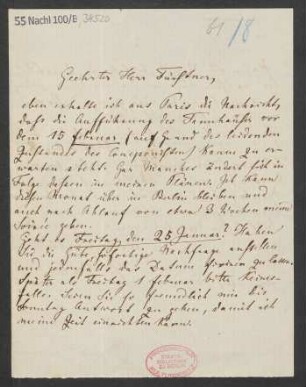 55 Nachl 100/B
61 / 8
Geehrter Herr
eben erhalte ich aus Paris die Nachricht,
daß die Aufführung des Tannhäuser vor
dem 15 Februar (auf Grund des leidenden
Zustandes des Componisten) kaum zu er-
warten steht. Gar Manches ändert sich in
Folge dessen in meinen Plänen. Ich kann
diesen Monat über in Berlin bleiben und
auch nach Ablauf von etwa 3 Wochen meine
Soirée geben.
Geht es Freitag, den 25 Januar? Haben
Sie die Güte, sofortige Nachfrage anstellen
und jedenfalls das Datum fixiren zu lassen.
Später als Freitag 1 Februar bitte keines-
falls. Seien Sie so freundlich mir bis
Sonntag Antwort zu geben, damit ich
meine Zeit einrichten kann.